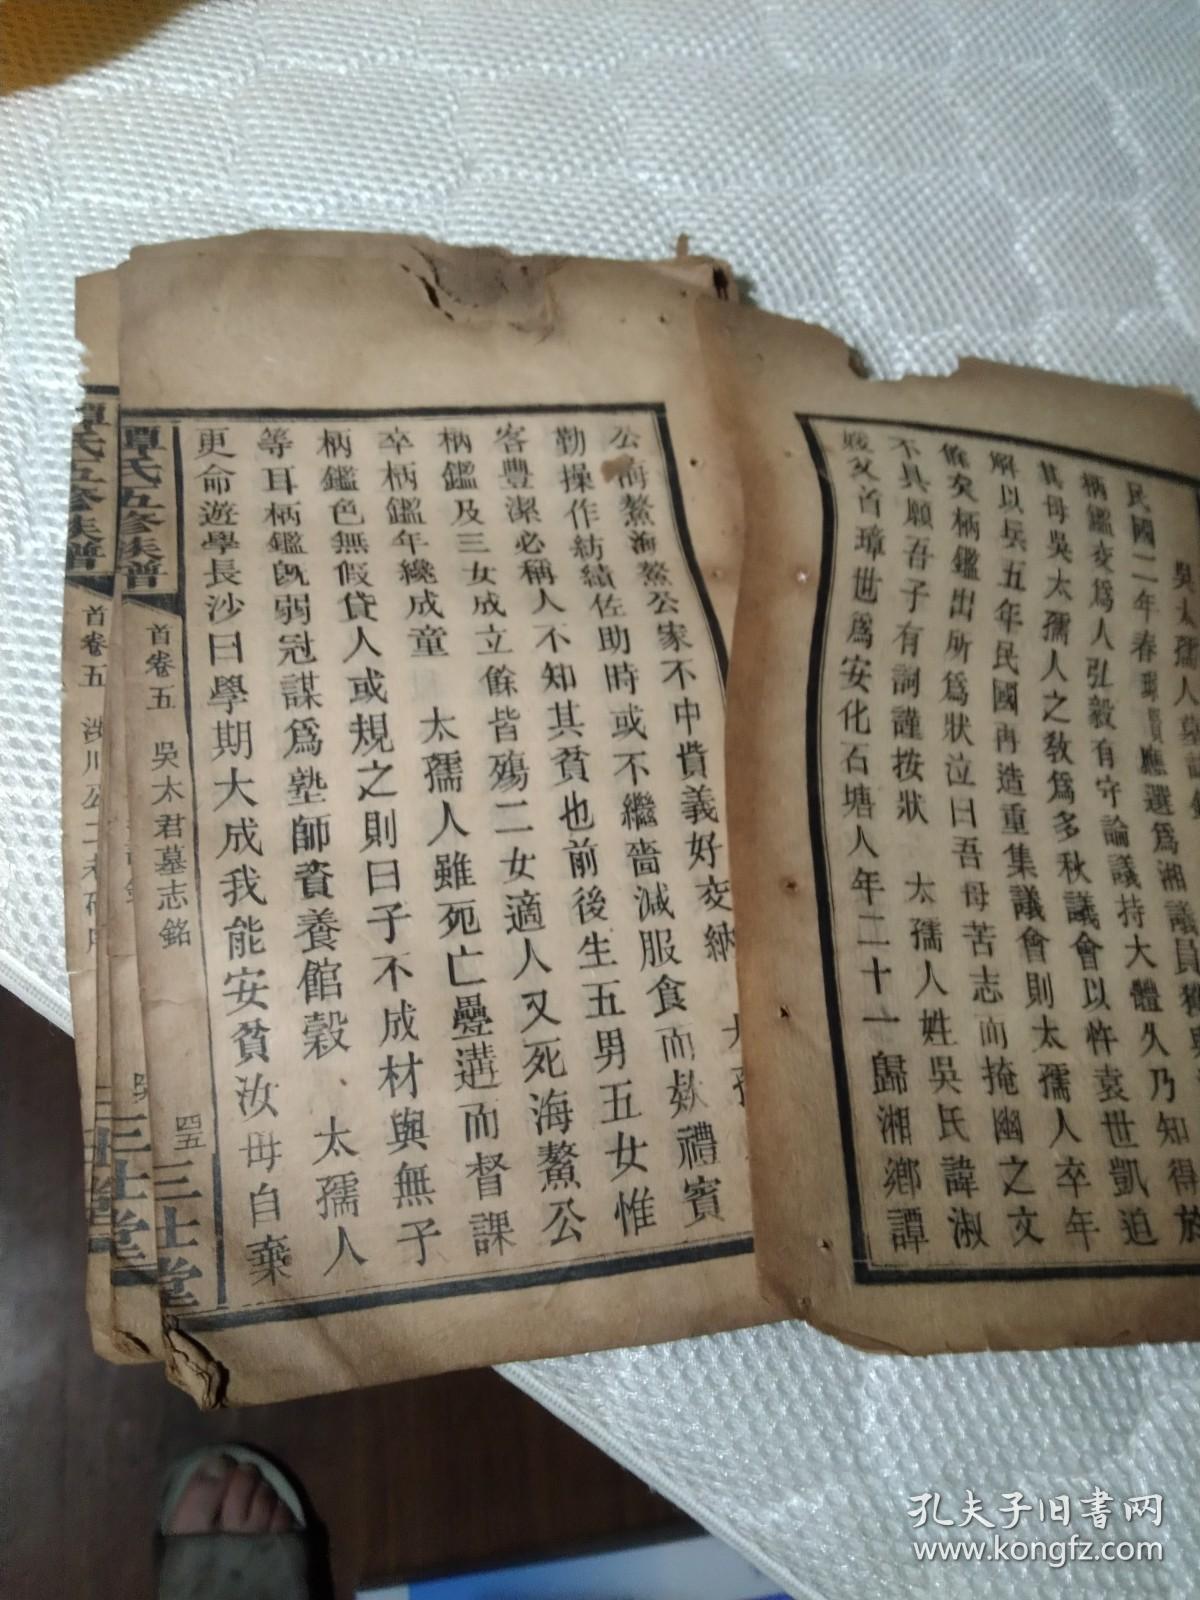 吳太孺人墓誌
民國二年春
應選爲湘議員
柄鑑交爲人弘毅有守論議持大體久乃知得於
其母吳太孺人之敎爲多秋議會以忤袁世凱迫
解以兵五年民國再造重集議會則太孺人卒年
餘矣柄鑑出所爲狀泣曰吾母苦志而掩幽之文
不具願吾子有詞謹按狀 太孺人姓吳氏諱淑
媛父首璋世爲安化石塘人年二十一歸湘鄉譚
公海鰲海鰲公家不中貲義好交納
勤操作紡績佐助時或不繼嗇減服食而款禮賓
客豐潔必稱人不知其貧也前後生五男五女惟
柄鑑及三女成立餘皆殤二女適人又死海鰲公
卒柄鑑年纔成童 太孺人雖死亡疊遘而督課
柄鑑色無假貸人或規之則曰子不成材與無子
等耳柄鑑旣弱冠謀爲塾師資養館穀、太孺人
更命遊學長沙曰學期大成我能安貧汝毋自棄
譚氏五修族譜
首卷五 吳太君墓志銘
四五
三仕堂
譚氏五修族譜
首卷五
三仕堂
孔夫子旧书网
www.kongfz.com